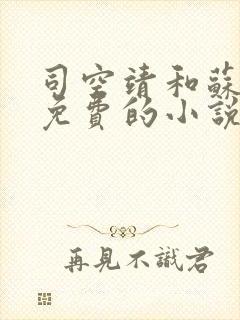 司空靖和蘇
免費的小說
再見不識君